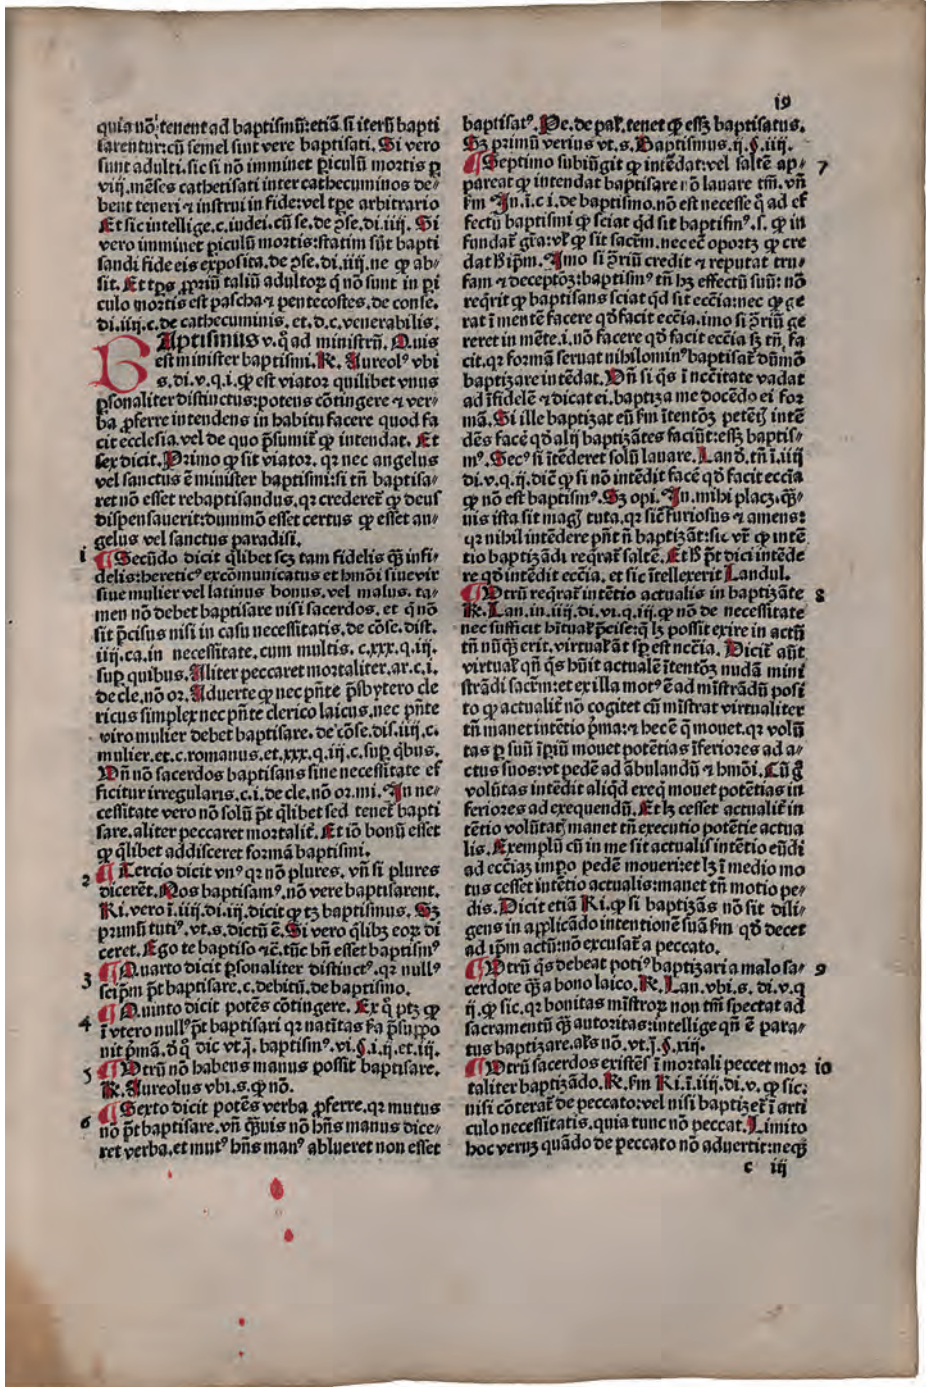 19
quia nō tenent ad baptismū: etiā si iterū bapti
sarentur: cū semel sint vere baptisati. Si vero
sunt adulti. sic si nō imminet ꝑiculū mortis ꝑ
viij. mēses cathetisati inter cathecuminos de⸗
bent teneri ⁊ instrui in fide: vel tꝑe arbitrario
Et sic intellige. c. iudei. cū se. de ꝯse. di. iiij. Si
vero imminet ꝑiculū mortis: statim sūt bapti
sandi fide eis exposita. de ꝯse. di. iiij. ne ꝙ ab⸗
sit. Et tꝑs ꝓpriū taliū adultoꝝ q̄ nō sunt in ꝑi
culo mortis est pascha ⁊ pentecostes. de conse.
di. iiij. c. de cathecuminis. et. d. c. venerabilis.
BAptismus v. q̊ ad ministrū. Quis
est minister baptismi. R. Aureolꝰ vbi
s. di. v. q. i. ꝙ est viator quilibet vnus
ꝑsonaliter distinctus: potens cōtingere ⁊ ver⸗
ba ꝓferre intendens in habitu facere quod fa
cit ecclesia. vel de quo p̄sumit̄ ꝙ intendat. Et
sex dicit. Primo ꝙ sit viator. qr nec angelus
vel sanctus ē minister baptismi: si tn̄ baptisa⸗
ret nō esset rebaptisandus. qr crederet̄ ꝙ deus
dispensauerit: dummō esset certus ꝙ esset an⸗
gelus vel sanctus paradisi.
1 ¶ Secūdo dicit q̄libet scꝫ tam fidelis q̄ꝫ infi⸗
delis: hereticꝰ excōmunicatus et hmōi siue vir
siue mulier vel latinus bonus. vel malus. ta⸗
men nō debet baptisare nisi sacerdos. et q̄ nō
sit p̄cisus nisi in casu necessitatis. de cōse. dist.
iiij. ca. in necessitate. cum multis. c. xxx. q. iij.
suꝑ quibus. Aliter peccaret mortaliter. ar. c. i.
de cle. nō or. Aduerte ꝙ nec pn̄te p̄sbytero cle
ricus simplex nec pn̄te clerico laicus. nec pn̄te
viro mulier debet baptisare. de cōse. dis. iiij. c.
mulier. et. c. romanus. et. xxx. q. iij. c. suꝑ q̄bus.
Vn̄ nō sacerdos baptisans sine necessitate ef
ficitur irregularis. c. i. de cle. nō or. mi. In ne⸗
cessitate vero nō solū pt̄ q̄libet sed tenet̄ bapti
sare. aliter peccaret mortalit̄. Et iō bonū esset
ꝙ q̄libet addisceret formā baptismi.
2 ¶ Tercio dicit vnꝰ qr nō plures. vn̄ si plures
dicerēt. Nos baptisamꝰ. nō vere baptisarent.
Ri. vero ī. iiij. di. iij. dicit ꝙ tꝫ baptismus. Sꝫ
primū tutiꝰ. vt. s. dictū ē. Si vero q̄libꝫ eoꝝ di
ceret. Ego te baptiso ⁊c. tūc bn̄ esset baptismꝰ
3 ¶ Quarto dicit ꝑsonaliter distinctꝰ. qr nullꝰ
seip̄m pt̄ baptisare. c. debitū. de baptismo.
4 ¶ Quinto dicit potēs cōtingere. Ex q̊ ptꝫ ꝙ
ī vtero nullꝰ pt̄ baptisari qr natiītas fa p̄suppo
nit p̄mā. d̄ q̊ dic vt. j. baptismꝰ. vi. §. i. ij. et. iij.
5 ¶ Vtrū nō habens manus possit baptisare.
R. Aureolus vbi. s. ꝙ nō.
6 ¶ Sexto dicit potēs verba ꝓferre. qr mutus
nō pt̄ baptisare. vn̄ q̄ꝫuis nō hn̄s manus dice⸗
ret verba. et mutꝰ hn̄s manꝰ ablueret non esset
baptisatꝰ. Pe. de pal. tenet ꝙ essꝫ baptisatus.
Sꝫ primū verius vt. s. Baptismus. ij. §. iiij.
¶ Septimo subiūgit ꝙ intēdat: vel saltē ap⸗ 7
pareat ꝙ intendat baptisare nō lauare tm̄. vn̄
fm In. ī. c. i. de baptismo. nō est necesse q̄ ad ef
fectū baptismi ꝙ sciat qd sit baptismꝰ. s. ꝙ in
fundat̄ gr̄a: vl̓ ꝙ sit sacrm̄. nec ec̄ oportꝫ ꝙ cre
dat ip̄m. Imo si ꝯriū credit ⁊ reputat tru⸗
fam ⁊ deceptoꝫ: baptismꝰ tn̄ hꝫ effectū suū: nō
reqrit ꝙ baptisans sciat qd sit ecc̄ia: nec ꝙ ge
rat ī mentē facere qd̓ facit ecc̄ia. imo si ꝯriū ge
reret in mēte. i. nō facere qd̓ facit ecc̄ia sꝫ tn̄ fa
cit. qr formā seruat nihilominꝰ baptisat̄ dūmō
baptizare intēdat. Vn̄ si q̄s ī nccitate vadat
ad īfidelē ⁊ dicat ei. baptiza me docēdo ei for
mā. Si ille baptizat eū fm ītentōꝫ petētꝭ intē
dēs facē qd̓ alij baptizātes faciūt: essꝫ baptis⸗
mꝰ. Secꝰ si ītēderet solū lauare. Land̓. tn̄ ī. iiij
di. v. q. ij. dic̄ ꝙ si nō intēdit facē qd̓ facit ecc̄ia
ꝙ nō est baptismꝰ. Sꝫ opi. In. mihi placꝫ. q̄ꝫ⸗
uis ista sit magꝭ tuta. qr sic̄ furiosus ⁊ amens:
qr nihil intēdere pn̄t n̄ baptizāt: sic vr̄ ꝙ intē
tio baptizādi reqrat̄ saltē. Et pt̄ dici intēde
re qd̓ intēdit ecc̄ia. et sic ītellexerit Landul.
¶ Vtrū reqrat̄ intētio actualis in baptizāte 8
R. Lan. in. iiij. di. vi. q. iij. ꝙ nō de necessitate
nec sufficit hītual̓ p̄cise: q̄ lꝫ possit exire in actū
tn̄ nūq̄ꝫ erit. virtual̓ āt sꝑ est nccīa. Dicit̄ aūt
virtual̓ qn̄ q̄s hūit actualē ītentōꝫ nudā mini
strādi sacrm̄: et ex illa motꝰ ē ad mīstrādū posi
to ꝙ actualit̄ nō cogitet cū mīstrat virtualiter
tn̄ manet intētio p̄ma: ⁊ hec ē q̄ mouet. qr volū
tas ꝑ suū īꝑiū mouet potētias īferiores ad a⸗
ctus suos: vt pedē ad ābulandū ⁊ hmōi. Cū g̊
volūtas intēdit aliqd̓ exeq̄ mouet potētias in
feriores ad exequendū. Et lꝫ cesset actualit̄ in
tētio volūtatꝭ manet tn̄ executio potētie actua
lis. Exemplū cū in me sit actualis intētio eūdi
ad ecc̄iaꝫ imꝑo pedē moueri: et lꝫ ī medio mo
tus cesset intētio actualis: manet tn̄ motio pe⸗
dis. Dicit etiā Ri. ꝙ si baptizās nō sit dili⸗
gens in applicādo intentionē suā fm qd̓ decet
ad ip̄m actū: nō excusat̄ a peccato.
¶ Vtrū q̄s debeat potiꝰ baptizari a malo sa⸗ 9
cerdote q̄ꝫ a bono laico. R. Lan. vbi. s. di. v. q
ij. ꝙ sic. qr bonitas mīstroꝝ non tm̄ spectat ad
sacramentū q̄ꝫ autoritas: intellige qn̄ ē para⸗
tus baptizare. al̓s nō. vt. j. §. xiij.
¶ Vtrū sacerdos existēs ī mortali peccet mor 10
taliter baptizādo. R. fm Ri. ī. iiij. di. v. ꝙ sic.
nisi cōterat̄ de peccato: vel nisi baptizet̄ ī arti
culo necessitatis. quia tunc nō peccat. Limito
hoc veruꝫ quādo de peccato nō aduertit: neqꝫ
c iij